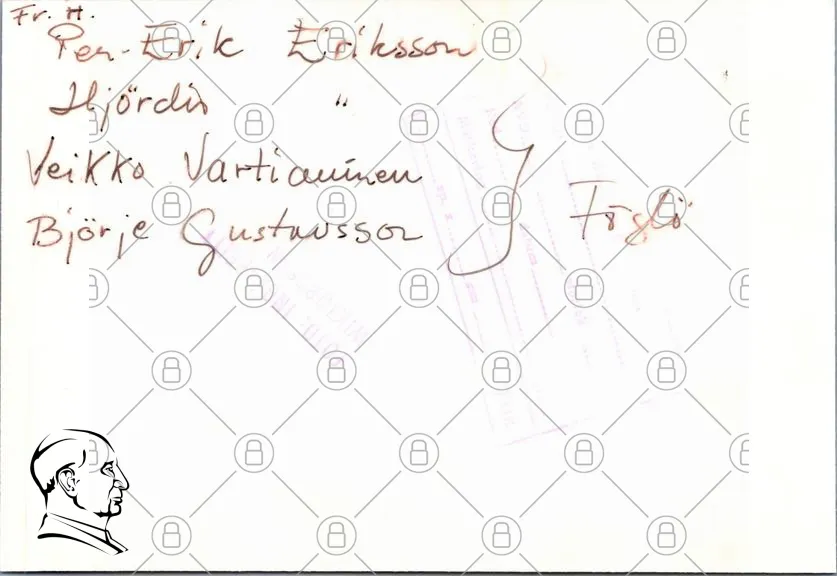 Fr. H.
Per-Erik Eriksson
Hjördis "
Veikko Vartiauinen
Björje Gustavsson
Föglö